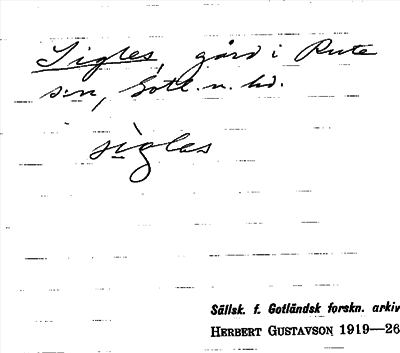 Sigles, gård i Rute
sn, Gotl. n. hd.
sigles
Sällsk. f. Gotländsk forskn. arkiv
HERBERT GUSTAVSON 1919—26